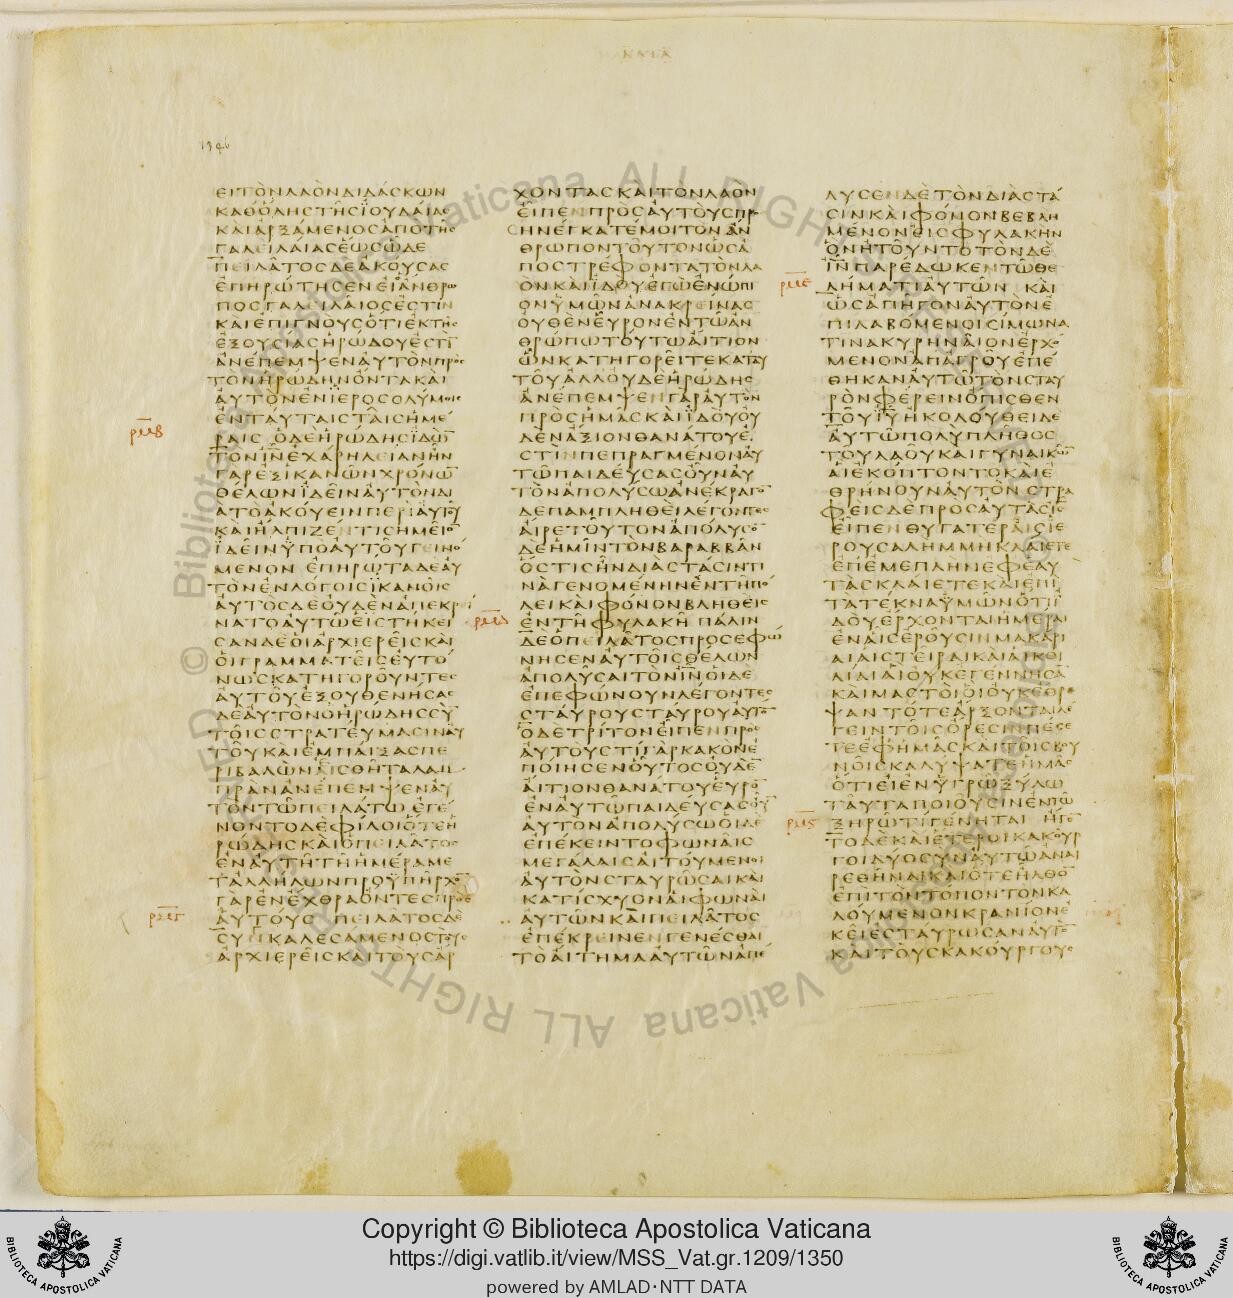 ΚΑΤΑ
1346
ΕΙΤΟΝΛΑΟΝΔΙΔΑΣΚΩΝ
ΚΑΘΟΛΗΣΤΗΣΪΟΥΔΑΙΑΣ
ΚΑΙΑΡΞΑΜΕΝΟΣΑΠΟΤΗΣ
ΓΑΛΕΙΛΑΙΑΣΕΩΣΩΔΕ
ΠΕΙΛΑΤΟΣΔΕΑΚΟΥΣΑΣ
ΕΠΗΡΩΤΗΣΕΝΕΙΑΝΘΡΩ
ΠΟΣΓΑΛΕΙΛΑΙΟΣΕΣΤΙΝ
ΚΑΙΕΠΙΓΝΟΥΣΟΤΙΕΚΤΗΣ
ΕΞΟΥΣΙΑΣΗΡΩΔΟΥΕΣΤΙ
ΑΝΕΠΕΜΨΕΝΑΥΤΟΝΠΡΟΣ
ΤΟΝΗΡΩΔΗΝΟΝΤΑΚΑΙ
ΑΥΤΟΝΕΝΪΕΡΟΣΟΛΥΜΟΙΣ
ΕΝΤΑΥΤΑΙΣΤΑΙΣΗΜΕ
ΡΑΙΣ ΟΔΕΗΡΩΔΗΣΪΔΩ
ΤΟΝΙΝΕΧΑΡΗΛΕΙΑΝΗΝ
ΓΑΡΕΞΙΚΑΝΩΝΧΡΟΝΩ
ΘΕΛΩΝΪΔΕΙΝΑΥΤΟΝΔΙ
ΑΤΟΑΚΟΥΕΙΝΠΕΡΙΑΥΤΟΥ
ΚΑΙΗΛΠΙΖΕΝΤΙΣΗΜΕΙΟ
ΪΔΕΙΝΫΠΟΑΥΤΟΥΓΕΙΝΟ
ΜΕΝΟΝ ΕΠΗΡΩΤΑΔΕΑΥ
ΤΟΝΕΝΛΟΓΟΙΣΪΚΑΝΟΙΣ
ΑΥΤΟΣΔΕΟΥΔΕΝΑΠΕΚΡΙ
ΝΑΤΟΑΥΤΩΕΙΣΤΗΚΕΙ
ΣΑΝΔΕΟΙΑΡΧΙΕΡΕΙΣΚΑΙ
ΟΙΓΡΑΜΜΑΤΕΙΣΕΥΤΟ
ΝΩΣΚΑΤΗΓΟΡΟΥΝΤΕΣ
ΑΥΤΟΥΕΞΟΥΘΕΝΗΣΑΣ
ΔΕΑΥΤΟΝΟΗΡΩΔΗΣΣΥ
ΤΟΙΣΣΤΡΑΤΕΥΜΑΣΙΝΑΥ
ΤΟΥΚΑΙΕΜΠΑΙΞΑΣΠΕ
ΡΙΒΑΛΩΝΕΣΘΗΤΑΛΑΜ
ΠΡΑΝΑΝΕΠΕΜΨΕΝΑΥ
ΤΟΝΤΩΠΕΙΛΑΤΩ ΕΓΕ
ΝΟΝΤΟΔΕΦΙΛΟΙΟΤΕΗ
ΡΩΔΗΣΚΑΙΟΠΕΙΛΑΤΟΣ
ΕΝΑΥΤΗΤΗΗΜΕΡΑΜΕ
ΤΑΛΛΗΛΩΝΠΡΟΫΠΗΡΧΟ
ΓΑΡΕΝΕΧΘΡΑΟΝΤΕΣΠΡΟΣ
ΑΥΤΟΥΣ ΠΕΙΛΑΤΟΣΔΕ
ΣΥΝΚΑΛΕΣΑΜΕΝΟΣΤΟΥΣ
ΑΡΧΙΕΡΕΙΣΚΑΙΤΟΥΣΑΡ
ΧΟΝΤΑΣΚΑΙΤΟΝΛΑΟΝ
ΕΙΠΕΝΠΡΟΣΑΥΤΟΥΣΠΡΟΣ
ΗΝΕΓΚΑΤΕΜΟΙΤΟΝΑΝ
ΘΡΩΠΟΝΤΟΥΤΟΝΩΣΑ
ΠΟΣΤΡΕΦΟΝΤΑΤΟΝΛΑ
ΟΝΚΑΙΪΔΟΥΕΓΩΕΝΩΠΙ
ΟΝΥΜΩΝΑΝΑΚΡΕΙΝΑΣ
ΟΥΘΕΝΕΥΡΟΝΕΝΤΩΑΝ
ΘΡΩΠΩΤΟΥΤΩΑΙΤΙΟΝ
ΩΝΚΑΤΗΓΟΡΕΙΤΕΚΑΤΑΥ
ΤΟΥΑΛΛΟΥΔΕΗΡΩΔΗΣ
ΑΝΕΠΕΜΨΕΝΓΑΡΑΥΤΟΝ
ΠΡΟΣΗΜΑΣΚΑΙΪΔΟΥΟΥ
ΔΕΝΑΞΙΟΝΘΑΝΑΤΟΥΕ
ΣΤΙΝΠΕΠΡΑΓΜΕΝΟΝΑΥ
ΤΩΠΑΙΔΕΥΣΑΣΟΥΝΑΥ
ΤΟΝΑΠΟΛΥΣΩΑΝΕΚΡΑΓΟ
ΔΕΠΑΜΠΛΗΘΕΙΛΕΓΟΝΤΕΣ
ΑΙΡΕΤΟΥΤΟΝΑΠΟΛΥΣΟ
ΔΕΗΜΙΝΤΟΝΒΑΡΑΒΒΑΝ
ΟΣΤΙΣΗΝΔΙΑΣΤΑΣΙΝΤΙ
ΝΑΓΕΝΟΜΕΝΗΝΕΝΤΗΠΟ
ΛΕΙΚΑΙΦΟΝΟΝΒΛΗΘΕΙΣ
ΕΝΤΗΦΥΛΑΚΗ ΠΑΛΙΝ
ΔΕΟΠΕΙΛΑΤΟΣΠΡΟΣΕΦΩ
ΝΗΣΕΝΑΥΤΟΙΣΘΕΛΩΝ
ΑΠΟΛΥΣΑΙΤΟΝΙΝΟΙΔΕ
ΕΠΕΦΩΝΟΥΝΛΕΓΟΝΤΕΣ
ΣΤΑΥΡΟΥΣΤΑΥΡΟΥΑΥΤΟ
ΟΔΕΤΡΙΤΟΝΕΙΠΕΝΠΡΟΣ
ΑΥΤΟΥΣΤΙΓΑΡΚΑΚΟΝΕ
ΠΟΙΗΣΕΝΟΥΤΟΣΟΥΔΕ
ΑΙΤΙΟΝΘΑΝΑΤΟΥΕΥΡΟ
ΕΝΑΥΤΩΠΑΙΔΕΥΣΑΣΟΥ
ΑΥΤΟΝΑΠΟΛΥΣΩΟΙΔΕ
ΕΠΕΚΕΙΝΤΟΦΩΝΑΙΣ
ΜΕΓΑΛΑΙΣΑΙΤΟΥΜΕΝΟΙ
ΑΥΤΟΝΣΤΑΥΡΩΣΑΙΚΑΙ
ΚΑΤΙΣΧΥΟΝΑΙΦΩΝΑΙ
ΑΥΤΩΝΚΑΙΠΕΙΛΑΤΟΣ
ΕΠΕΚΡΕΙΝΕΝΓΕΝΕΣΘΑΙ
ΤΟΑΙΤΗΜΑΑΥΤΩΝΑΠΕ
ΛΥΣΕΝΔΕΤΟΝΔΙΑΣΤΑ
ΣΙΝΚΑΙΦΟΝΟΝΒΕΒΛΗ
ΜΕΝΟΝΕΙΣΦΥΛΑΚΗΝ
ΟΝΗΤΟΥΝΤΟΤΟΝΔΕ
ΙΝΠΑΡΕΔΩΚΕΝΤΩΘΕ
ΛΗΜΑΤΙΑΥΤΩΝ ΚΑΙ
ΩΣΑΠΗΓΟΝΑΥΤΟΝΕ
ΠΙΛΑΒΟΜΕΝΟΙΣΙΜΩΝΑ
ΤΙΝΑΚΥΡΗΝΑΙΟΝΕΡΧΟ
ΜΕΝΟΝΑΠΑΓΡΟΥΕΠΕ
ΘΗΚΑΝΑΥΤΩΤΟΝΣΤΑΥ
ΡΟΝΦΕΡΕΙΝΟΠΙΣΘΕΝ
ΤΟΥΙΥΗΚΟΛΟΥΘΕΙΔΕ
ΑΥΤΩΠΟΛΥΠΛΗΘΟΣ
ΤΟΥΛΑΟΥΚΑΙΓΥΝΑΙΚΩ
ΑΙΕΚΟΠΤΟΝΤΟΚΑΙΕ
ΘΡΗΝΟΥΝΑΥΤΟΝΣΤΡΑ
ΦΕΙΣΔΕΠΡΟΣΑΥΤΑΣΙΣ
ΕΙΠΕΝΘΥΓΑΤΕΡΕΣΙΕ
ΡΟΥΣΑΛΗΜΜΗΚΛΑΙΕΤΕ
ΕΠΕΜΕΠΛΗΝΕΦΕΑΥ
ΤΑΣΚΛΑΙΕΤΕΚΑΙΕΠΙ
ΤΑΤΕΚΝΑΫΜΩΝΟΤΙΪ
ΔΟΥΕΡΧΟΝΤΑΙΗΜΕΡΑΙ
ΕΝΑΙΣΕΡΟΥΣΙΝΜΑΚΑΡΙ
ΑΙΑΙΣΤΕΙΡΑΙΚΑΙΑΙΚΟΙ
ΛΙΑΙΑΙΟΥΚΕΓΕΝΝΗΣΑ
ΚΑΙΜΑΣΤΟΙΟΙΟΥΚΕΘΡΕ
ΨΑΝ ΤΟΤΕΑΡΞΟΝΤΑΙΛΕ
ΓΕΙΝΤΟΙΣΟΡΕΣΙΝΠΕΣΕ
ΤΕΕΦΗΜΑΣΚΑΙΤΟΙΣΒΟΥ
ΝΟΙΣΚΑΛΥΨΑΤΕΗΜΑΣ
ΟΤΙΕΙΕΝΫΓΡΩΞΥΛΩ
ΤΑΥΤΑΠΟΙΟΥΣΙΝΕΝΤΩ
ΞΗΡΩΤΙΓΕΝΗΤΑΙ ΗΓΟ
ΤΟΔΕΚΑΙΕΤΕΡΟΙΚΑΚΟΥΡ
ΓΟΙΔΥΟΣΥΝΑΥΤΩΑΝΑΙ
ΡΕΘΗΝΑΙΚΑΙΟΤΕΗΛΘΟ
ΕΠΙΤΟΝΤΟΠΟΝΤΟΝΚΑ
ΛΟΥΜΕΝΟΝΚΡΑΝΙΟΝΕ
ΚΕΙΕΣΤΑΥΡΩΣΑΝΑΥΤΟ
ΚΑΙΤΟΥΣΚΑΚΟΥΡΓΟΥΣ
Copyright © Biblioteca Apostolica Vaticana
https://digi.vatlib.it/view/MSS_Vat.gr.1209/1350
powered by AMLAD·NTT DATA